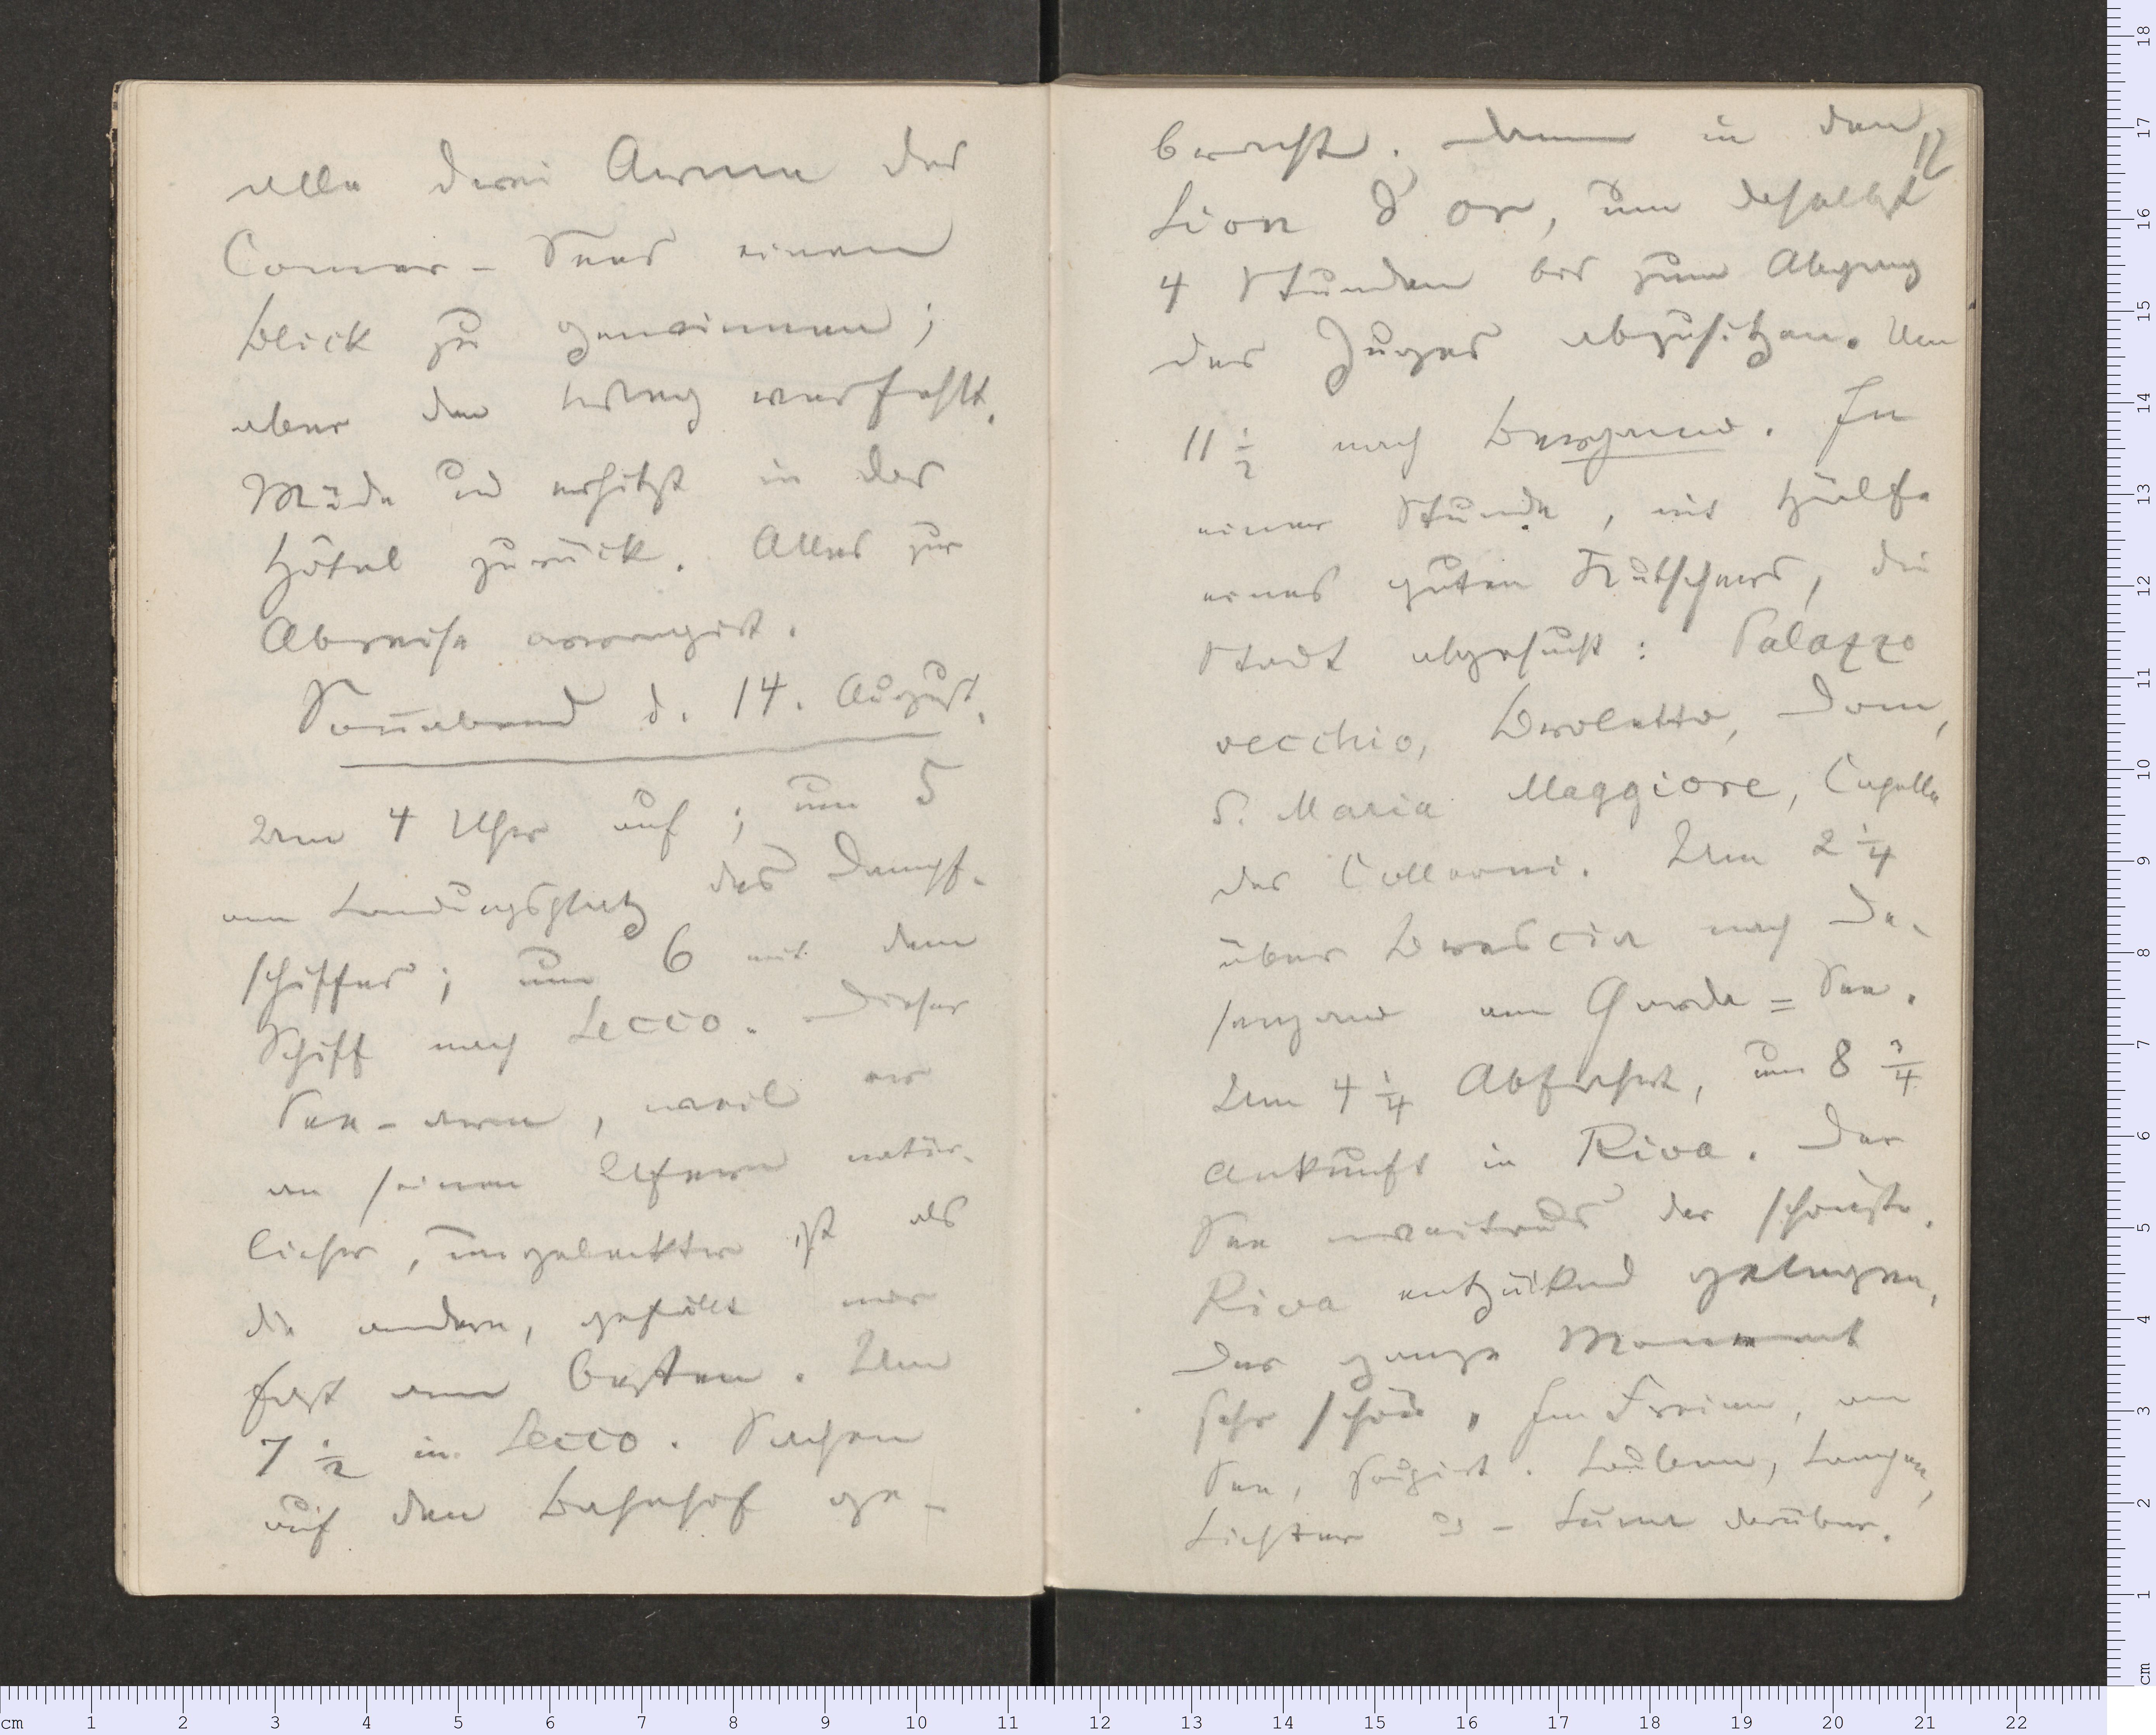 alle drei Arme des
Comer-Sees einen
Blick zu gewinnen;
aber den Weg verfehlt.
Müde und erhitzt in das
Hôtel zurück. Alles zur
Abreise arrangirt.
Sonnabend d. 14. August.
Um 4 Uhr auf; um 5
am Landungsplatz des Dampf-
schiffes; um 6 mit dem
Schiff nach Lecco. Dieser
See-arm, weil er
an seinen Ufern natür-
licher, ungeleckter ist als
die andern, gefällt mir
fast am besten. Um
7 ½ in Lecco. Sachen
auf den Bahnhof ge-
12
bracht. Dann in den
Lion d'or, um daselbst
4 Stunden bis zum Abgang
des Zuges abzusitzen. Um
11 ½ nach Bergamo. In
einer Stunde, mit Hülfe
eines guten Kutschers, die
Stadt abgesucht: Palazzo
vecchio, Broletto, Dom,
S. Maria Maggiore, Capella
der Colleoni. Um 2 ¼
über Brescia nach De-
senzano am Garda=See.
Um 4 ¼ Abfahrt, um 8 ¾
Ankunft in Riva. Der
See weitaus der schönste.
Riva entzückend gelegen,
der ganze Moment
sehr schön. Im Freien, am
See, soupirt. Lauben, Lampen,
Lichter u – Luna darüber.